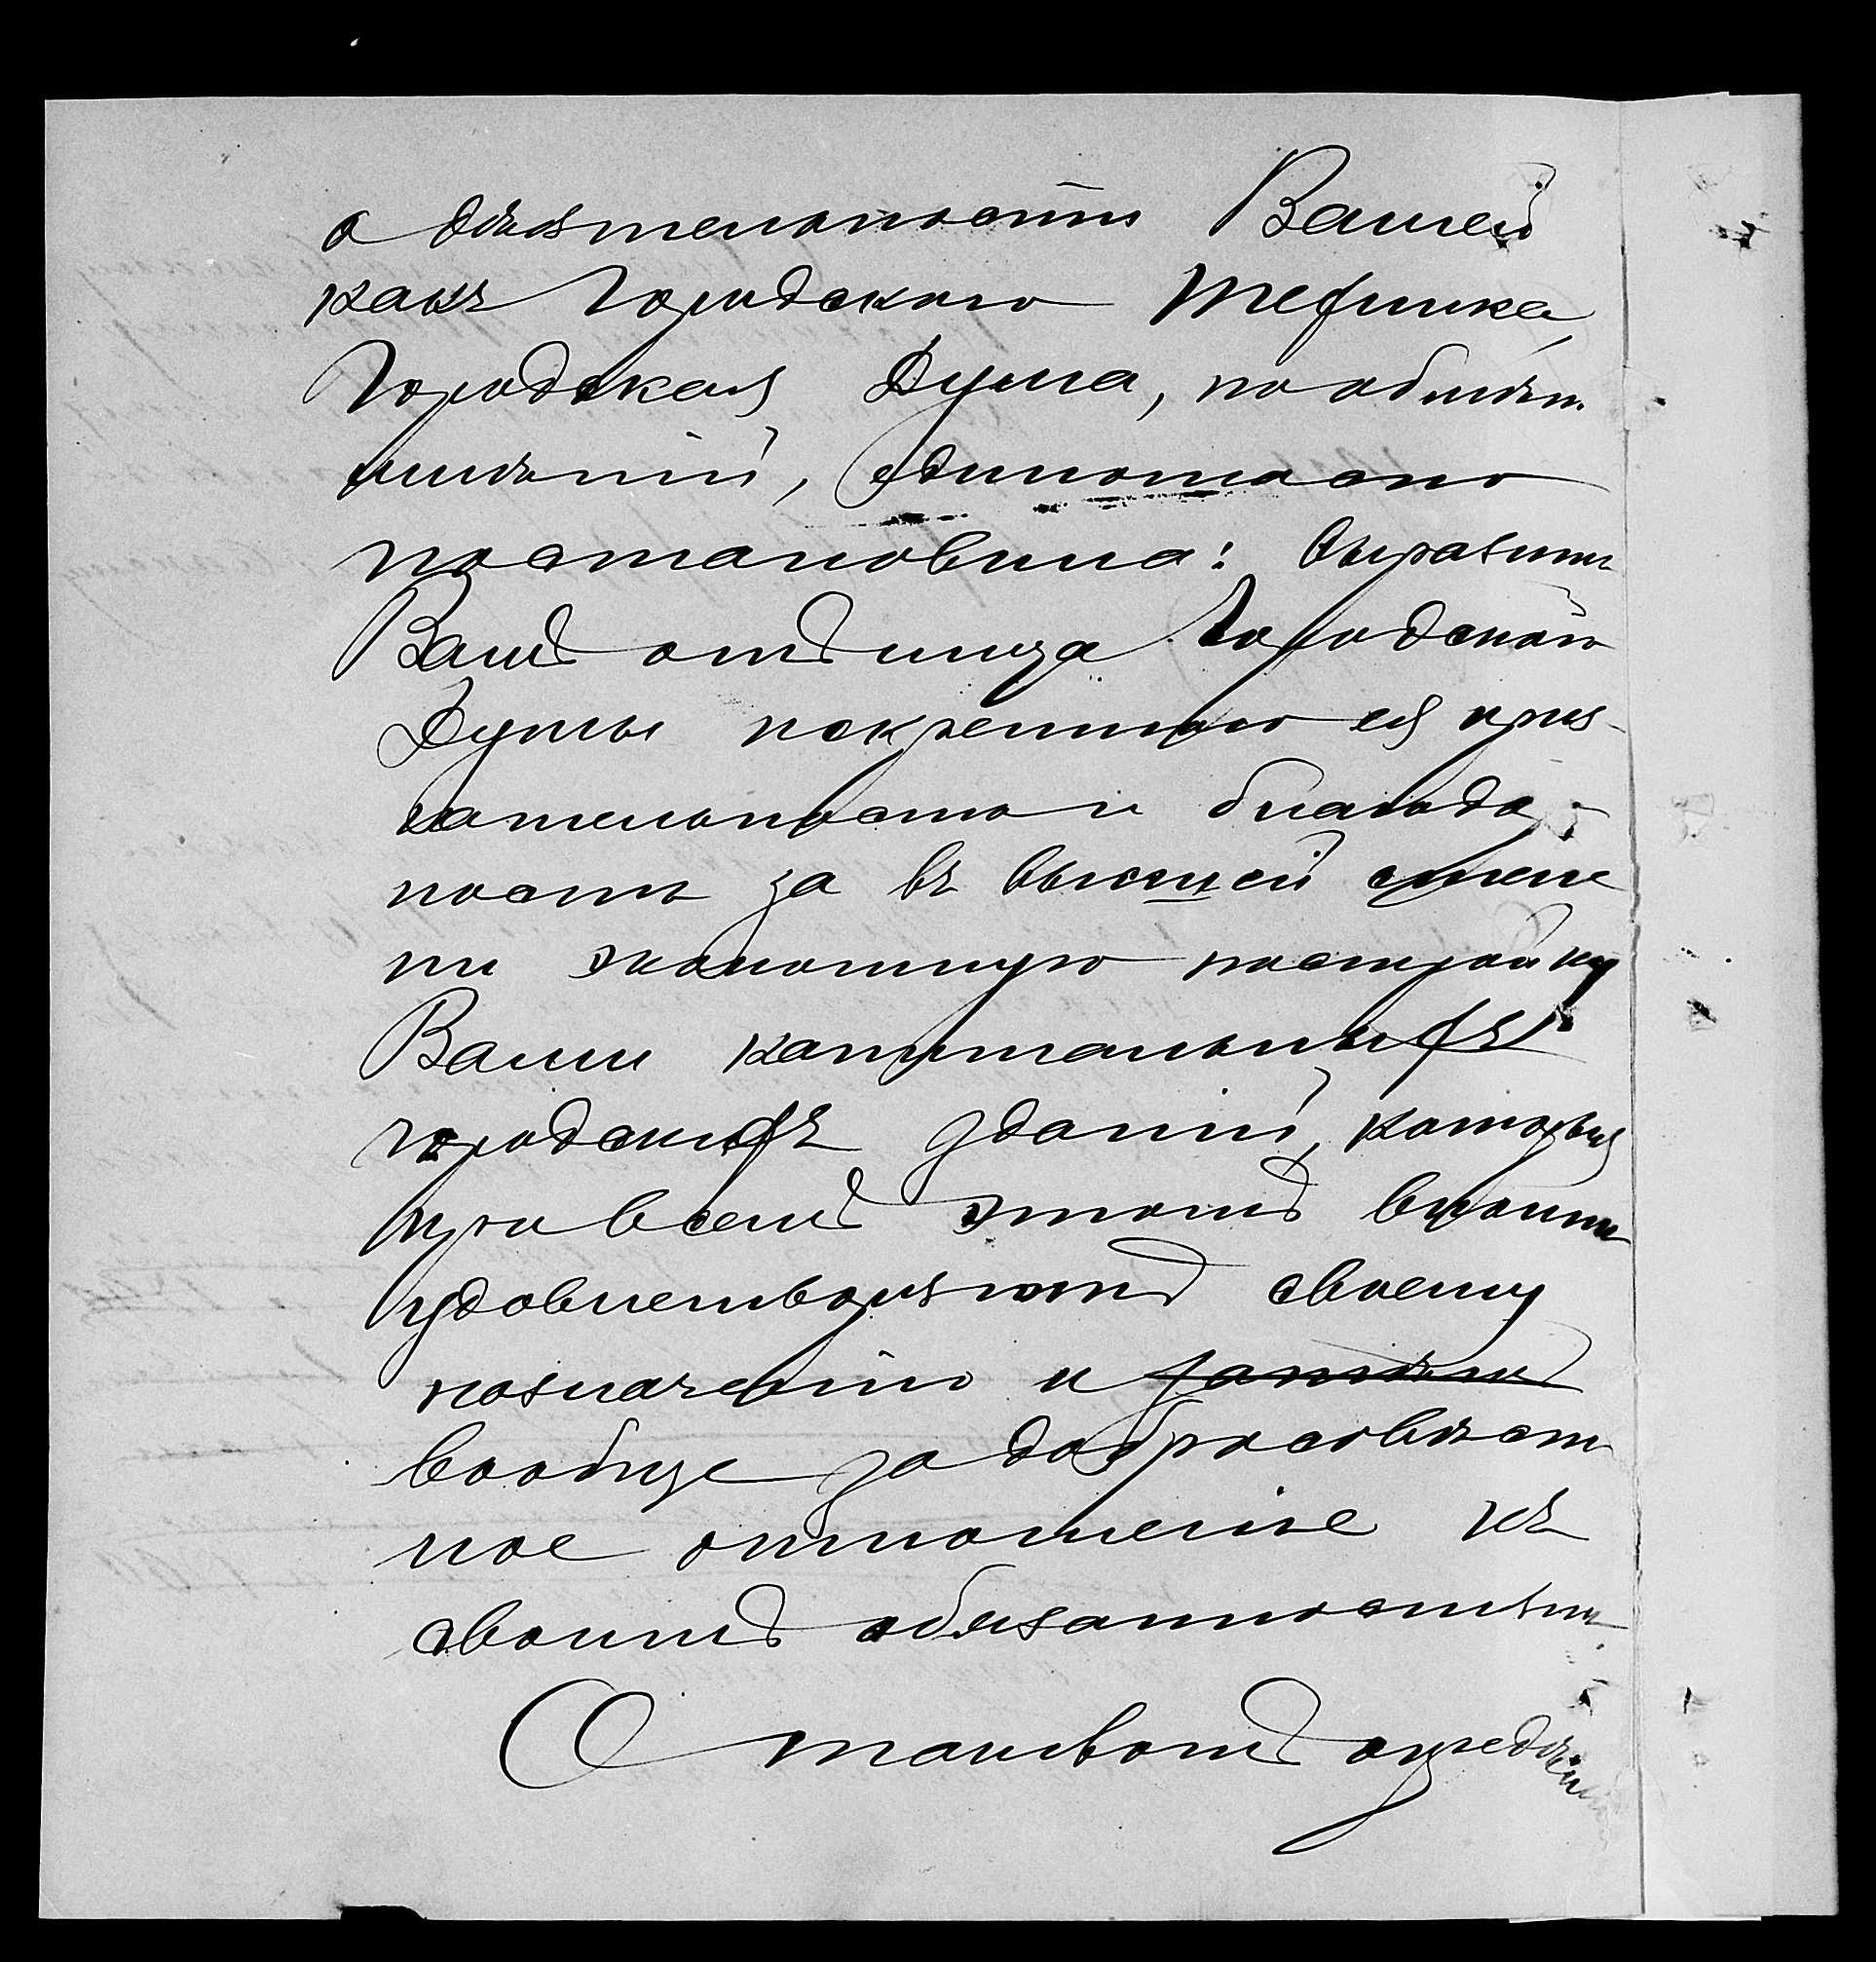 о дѣятельности Вашей
какъ Городского Техника,
Городская Дума, по обмѣн.
мнѣній, единогласно
постановила: выразить
Вамъ отъ лица Городской
Думы искреннюю ея приз-
нательность и благода-
ность за въ высшей степе
ни экономную постройку
Вами капитальныхъ
городскихъ зданій, которыя
при всемъ этомъ вполнѣ
удовлетворяютъ своему
назначенію и затѣмъ
вообще за добросовѣст
ное отношеніе къ
своимъ обязанностямъ.
О таковомъ опредѣленіи